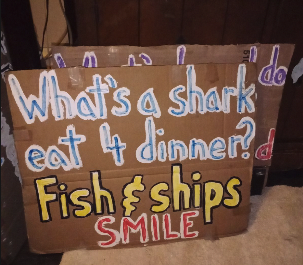 What's a shark
eat 4 dinner?
Fish & ships
SMILE
do
d